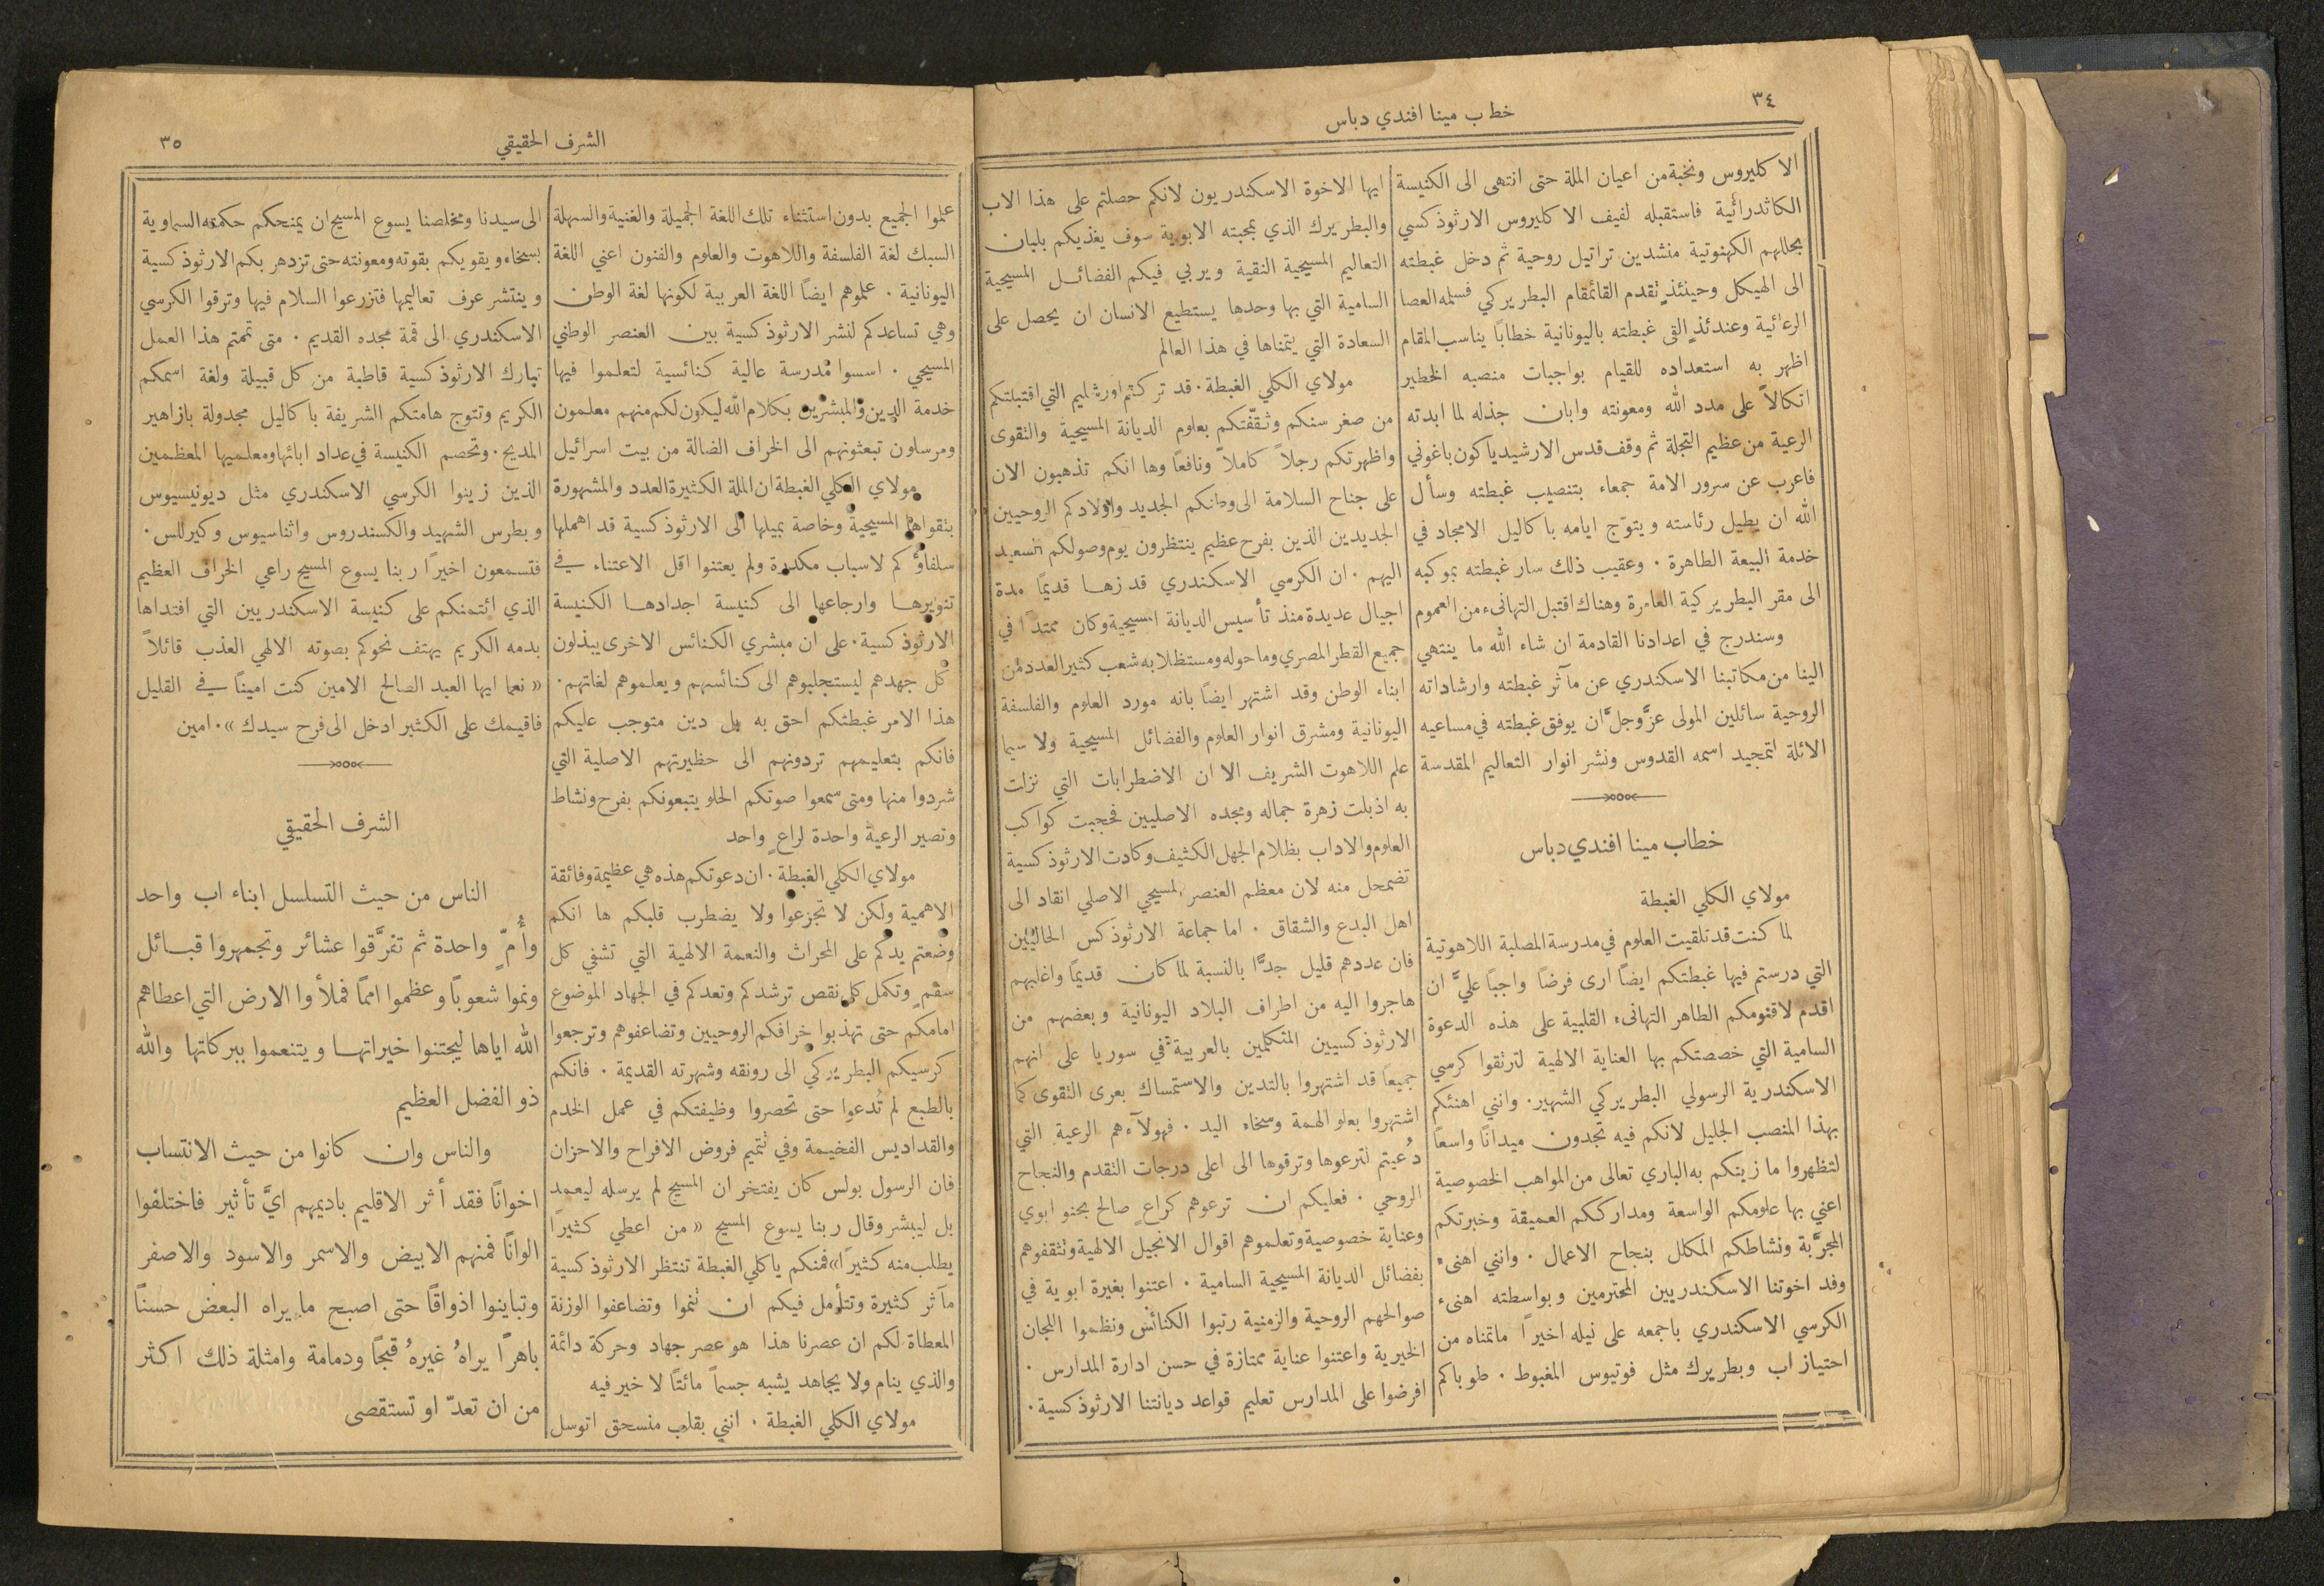 ٣٤
خطاب مينا افندي دباس
الاكليروس ونخبة من اعيان الملة حتى انتهى الى الكنيسة
الكاثدرائية فاستقبله لفيف الاكليروس الارثوذكسي
بحللهم الكهنوتية منشدين تراتيل روحية ثم دخل غبطته
الى الهيكل وحينئذٍ تقدم القائمقام البطريركي فسلمه العصا
الرعائية وعندئذٍ القى غبطته باليونانية خطابًا يناسب المقام
اظهر به استعداده للقيام بواجبات منصبه الخطير
اتكالاً على مدد الله ومعونته وابان جذله لما ابدته
الرعية من عظيم التجلة ثم وقف قدس الارشيدياكون باغوني
فاعرب عن سرور الامة جمعاء بتنصيب غبطته وسأل
الله ان يطيل رئاسته ويتوّج ايامه باكاليل الامجاد في
خدمة البيعة الطاهرة . وعقيب ذلك سار غبطته بموكبه
الى مقر البطريركية العامرة وهناك اقتبل التهانىء من العموم
وسندرج في اعدادنا القادمة ان شاء الله ما ينتهي
الينا من مكاتبنا الاسكندري عن مآثر غبطته وارشاداته
الروحية سائلين المولى عزَّ وجلَّ ان يوفق غبطته في مساعيه
الائلة لتمجيد اسمه القدوس ونشر انوار التعاليم المقدسة
خطاب مينا افندي دباس
مولاي الكلي الغبطة
لما كنت قد تلقيت العلوم في مدرسة المصلبة اللاهوتية
التي درستم فيها غبطتكم ايضًا ارى فرضًا واجبًا عليَّ ان
اقدم لاقنومكم الطاهر التهانىء القلبية على هذه الدعوة
السامية التي خصصتكم بها العناية الالهية لترتقوا كرسي
الاسكندرية الرسولي البطريركي الشهير . وانني اهنئكم
بهذا المنصب الجليل لانكم فيه تجدون ميدانًا واسعًا
لتظهروا ما زينكم به الباري تعالى من المواهب الخصوصية
اعني بها علومكم الواسعة ومدارككم العميقة وخبرتكم
المجرَّبة ونشاطكم المكلل بنجاح الاعمال . وانني اهنىء
وفد اخوتنا الاسكندريين المحترمين وبواسطته اهنىء
الكرسي الاسكندري باجمعه على نيله اخيرًا ماتمناه من
احتياز اب وبطريرك مثل فوتيوس المغبوط . طوباكم
ايها الاخوة الاسكندريون لانكم حصلتم على هذا الاب
والبطريرك الذي بمحبته الابوية سوف يغذيكم بلبان
التعاليم المسيحية النقية ويربي فيكم الفضائل المسيحية
السامية التي بها وحدها يستطيع الانسان ان يحصل على
السعادة التي يتمناها في هذا العالم
مولاي الكلي الغبطة . قد تركتم اورشليم التي اقتبلتكم
من صغر سنكم وثقّفتكم بعلوم الديانة المسيحية والتقوى
واظهرتكم رجلاً كاملاً ونافعًا وها انكم تذهبون الان
على جناح السلامة الى وطنكم الجديد واولادكم الروحيين
الجديدين الذين بفرح عظيم ينتظرون يوم وصولكم السعيد
اليهم . ان الكرسي الاسكندري قد زها قديمًا مدة
اجيال عديدة منذ تأسيس الديانة المسيحية وكان ممتدًا في
جميع القطر المصري وما حوله ومستظلا به شعب كثير العدد من
ابناء الوطن وقد اشتهر ايضًا بانه مورد العلوم والفلسفة
اليونانية ومشرق انوار العلوم والفضائل المسيحية ولا سيما
علم اللاهوت الشريف الا ان الاضطرابات التي نزلت
به اذبلت زهرة جماله ومجده الاصليين فحجبت كواكب
العلوم والاداب بظلام الجهل الكثيف وكادت الارثوذكسية
تضمحل منه لان معظم العنصر المسيحي الاصلي انقاد الى
اهل البدع والشقاق . اما جماعة الارثوذكس الحاليّين
فان عددهم قليل جدًّا بالنسبة لما كان قديمًا واغلبهم
هاجروا اليه من اطراف البلاد اليونانية وبعضهم من
الارثوذكسيين المتكلمين بالعربية في سوريا على انهم
جميعًا قد اشتهروا بالتدين والاستمساك بعرى التقوى كما
اشتهروا بعلو الهمة وسخاء اليد . فهولآء هم الرعية التي
دُعيتم لترعوها وترقوها الى اعلى درجات التقدم والنجاح
الروحي . فعليكم ان ترعوهم كراعٍ صالح بحنو ابوي
وعناية خصوصية وتعلموهم اقوال الانجيل الالهية وتثقفوهم
بفضائل الديانة المسيحية السامية . اعتنوا بغيرة ابوية في
صوالحهم الروحية والزمنية رتبوا الكنائس ونظموا اللجان
الخيرية واعتنوا عناية ممتازة في حسن ادارة المدارس .
افرضوا على المدارس تعليم قواعد ديانتنا الارثوذكسية .
الشرف الحقيقي
٣٥
علموا الجميع بدون استثناء تلك اللغة الجميلة والغنية والسهلة
السبك لغة الفلسفة واللاهوت والعلوم والفنون اعني اللغة
اليونانية . علموهم ايضًا اللغة العربية لكونها لغة الوطن
وهي تساعدكم لنشر الارثوذكسية بين العنصر الوطني
المسيحي . اسسوا مدرسة عالية كنائسية لتعلموا فيها
خدمة الدين والمبشرين بكلام الله ليكون لكم منهم معلمون
ومرسلون تبعثونهم الى الخراف الضالة من بيت اسرائيل
مولاي الكلي الغبطة ان الملة الكثيرة العدد والمشهورة
بتقواها المسيحية وخاصة بميلها الى الارثوذكسية قد اهملها
سلفاؤكم لاسباب مكدرة ولم يعتنوا اقل الاعتناء في
تنويرها وارجاعها الى كنيسة اجدادها الكنيسة
الارثوذكسية . على ان مبشري الكنائس الاخرى يبذلون
كل جهدهم ليستجلبوهم الى كنائسهم ويعلموهم لغاتهم .
هذا الامر غبطتكم احق به بل دين متوجب عليكم
فانكم بتعليمهم تردونهم الى حظيرتهم الاصلية التي
شردوا منها ومتى سمعوا صوتكم الحلو يتبعونكم بفرح ونشاط
وتصير الرعية واحدة لراعٍ واحد
مولاي الكلي الغبطة . ان دعوتكم هذه هي عظيمة وفائقة
الاهمية ولكن لا تجزعوا ولا يضطرب قلبكم ها انكم
وضعتم يدكم على المحراث والنعمة الالهية التي تشفي كل
سقم وتكمل كل نقص ترشدكم وتعدكم في الجهاد الموضوع
امامكم حتى تهذبوا خرافكم الروحيين وتضاعفوهم وترجعوا
كرسيكم البطريركي الى رونقه وشهرته القديمة . فانكم
بالطبع لم تُدعوا حتى تحصروا وظيفتكم في عمل الخدم
والقداديس الفخيمة وفي تتميم فروض الافراح والاحزان
فان الرسول بولس كان يفتخر ان المسيح لم يرسله ليعمد
بل ليبشر وقال ربنا يسوع المسيح « من اعطي كثيرًا
يطلب منه كثيرًا» فمنكم ياكلي الغبطة تنتظر الارثوذكسية
مآثر كثيرة وتتأمل فيكم ان تنموا وتضاعفوا الوزنة
المعطاة لكم ان عصرنا هذا هو عصر جهاد وحركة دائمة
والذي ينام ولا يجاهد يشبه جسمًا مائتًا لا خير فيه
مولاي الكلي الغبطة . انني بقلب منسحق اتوسل
الى سيدنا ومخلصنا يسوع المسيح ان يمنحكم حكمته السماوية
بسخاء ويقويكم بقوته ومعونته حتى تزدهر بكم الارثوذكسية
وينتشر عرف تعاليمها فتزرعوا السلام فيها وترقوا الكرسي
الاسكندري الى قمة مجده القديم . متى تممتم هذا العمل
تبارك الارثوذكسية قاطبة من كل قبيلة ولغة اسمكم
الكريم وتتوج هامتكم الشريفة باكاليل مجدولة بازاهير
المديح . وتحصم الكنيسة في عداد ابائها ومعلميها المعظمين
الذين زينوا الكرسي الاسكندري مثل ديونيسيوس
وبطرس الشهيد والكسندروس واثناسيوس وكيرللس .
فتسمعون اخيرًا ربنا يسوع المسيح راعي الخراف العظيم
الذي ائتمنكم على كنيسة الاسكندريين التي افتداها
بدمه الكريم يهتف نحوكم بصوته الالهي العذب قائلاً
« نعما ايها العبد الصالح الامين كنت امينًا في القليل
فاقيمك على الكثير ادخل الى فرح سيدك » . امين
الشرف الحقيقي
الناس من حيث التسلسل ابناء اب واحد
وأُمّ واحدة ثم تفرَّقوا عشائر وتجمهروا قبائل
ونموا شعوبًا وعظموا اممًا فملأوا الارض التي اعطاهم
الله اياها ليجتنوا خيراتها ويتنعموا ببركاتها والله
ذو الفضل العظيم
والناس وان كانوا من حيث الانتساب
اخوانًا فقد أثر الاقليم باديمهم ايَّ تأثير فاختلفوا
الوانًا فمنهم الابيض والاسمر والاسود والاصفر
وتباينوا اذواقًا حتى اصبح ما يراه البعض حسنًا
باهرًا يراهُ غيرهُ قبحًا ودمامة وامثلة ذلك اكثر
من ان تعدّ او تستقصى